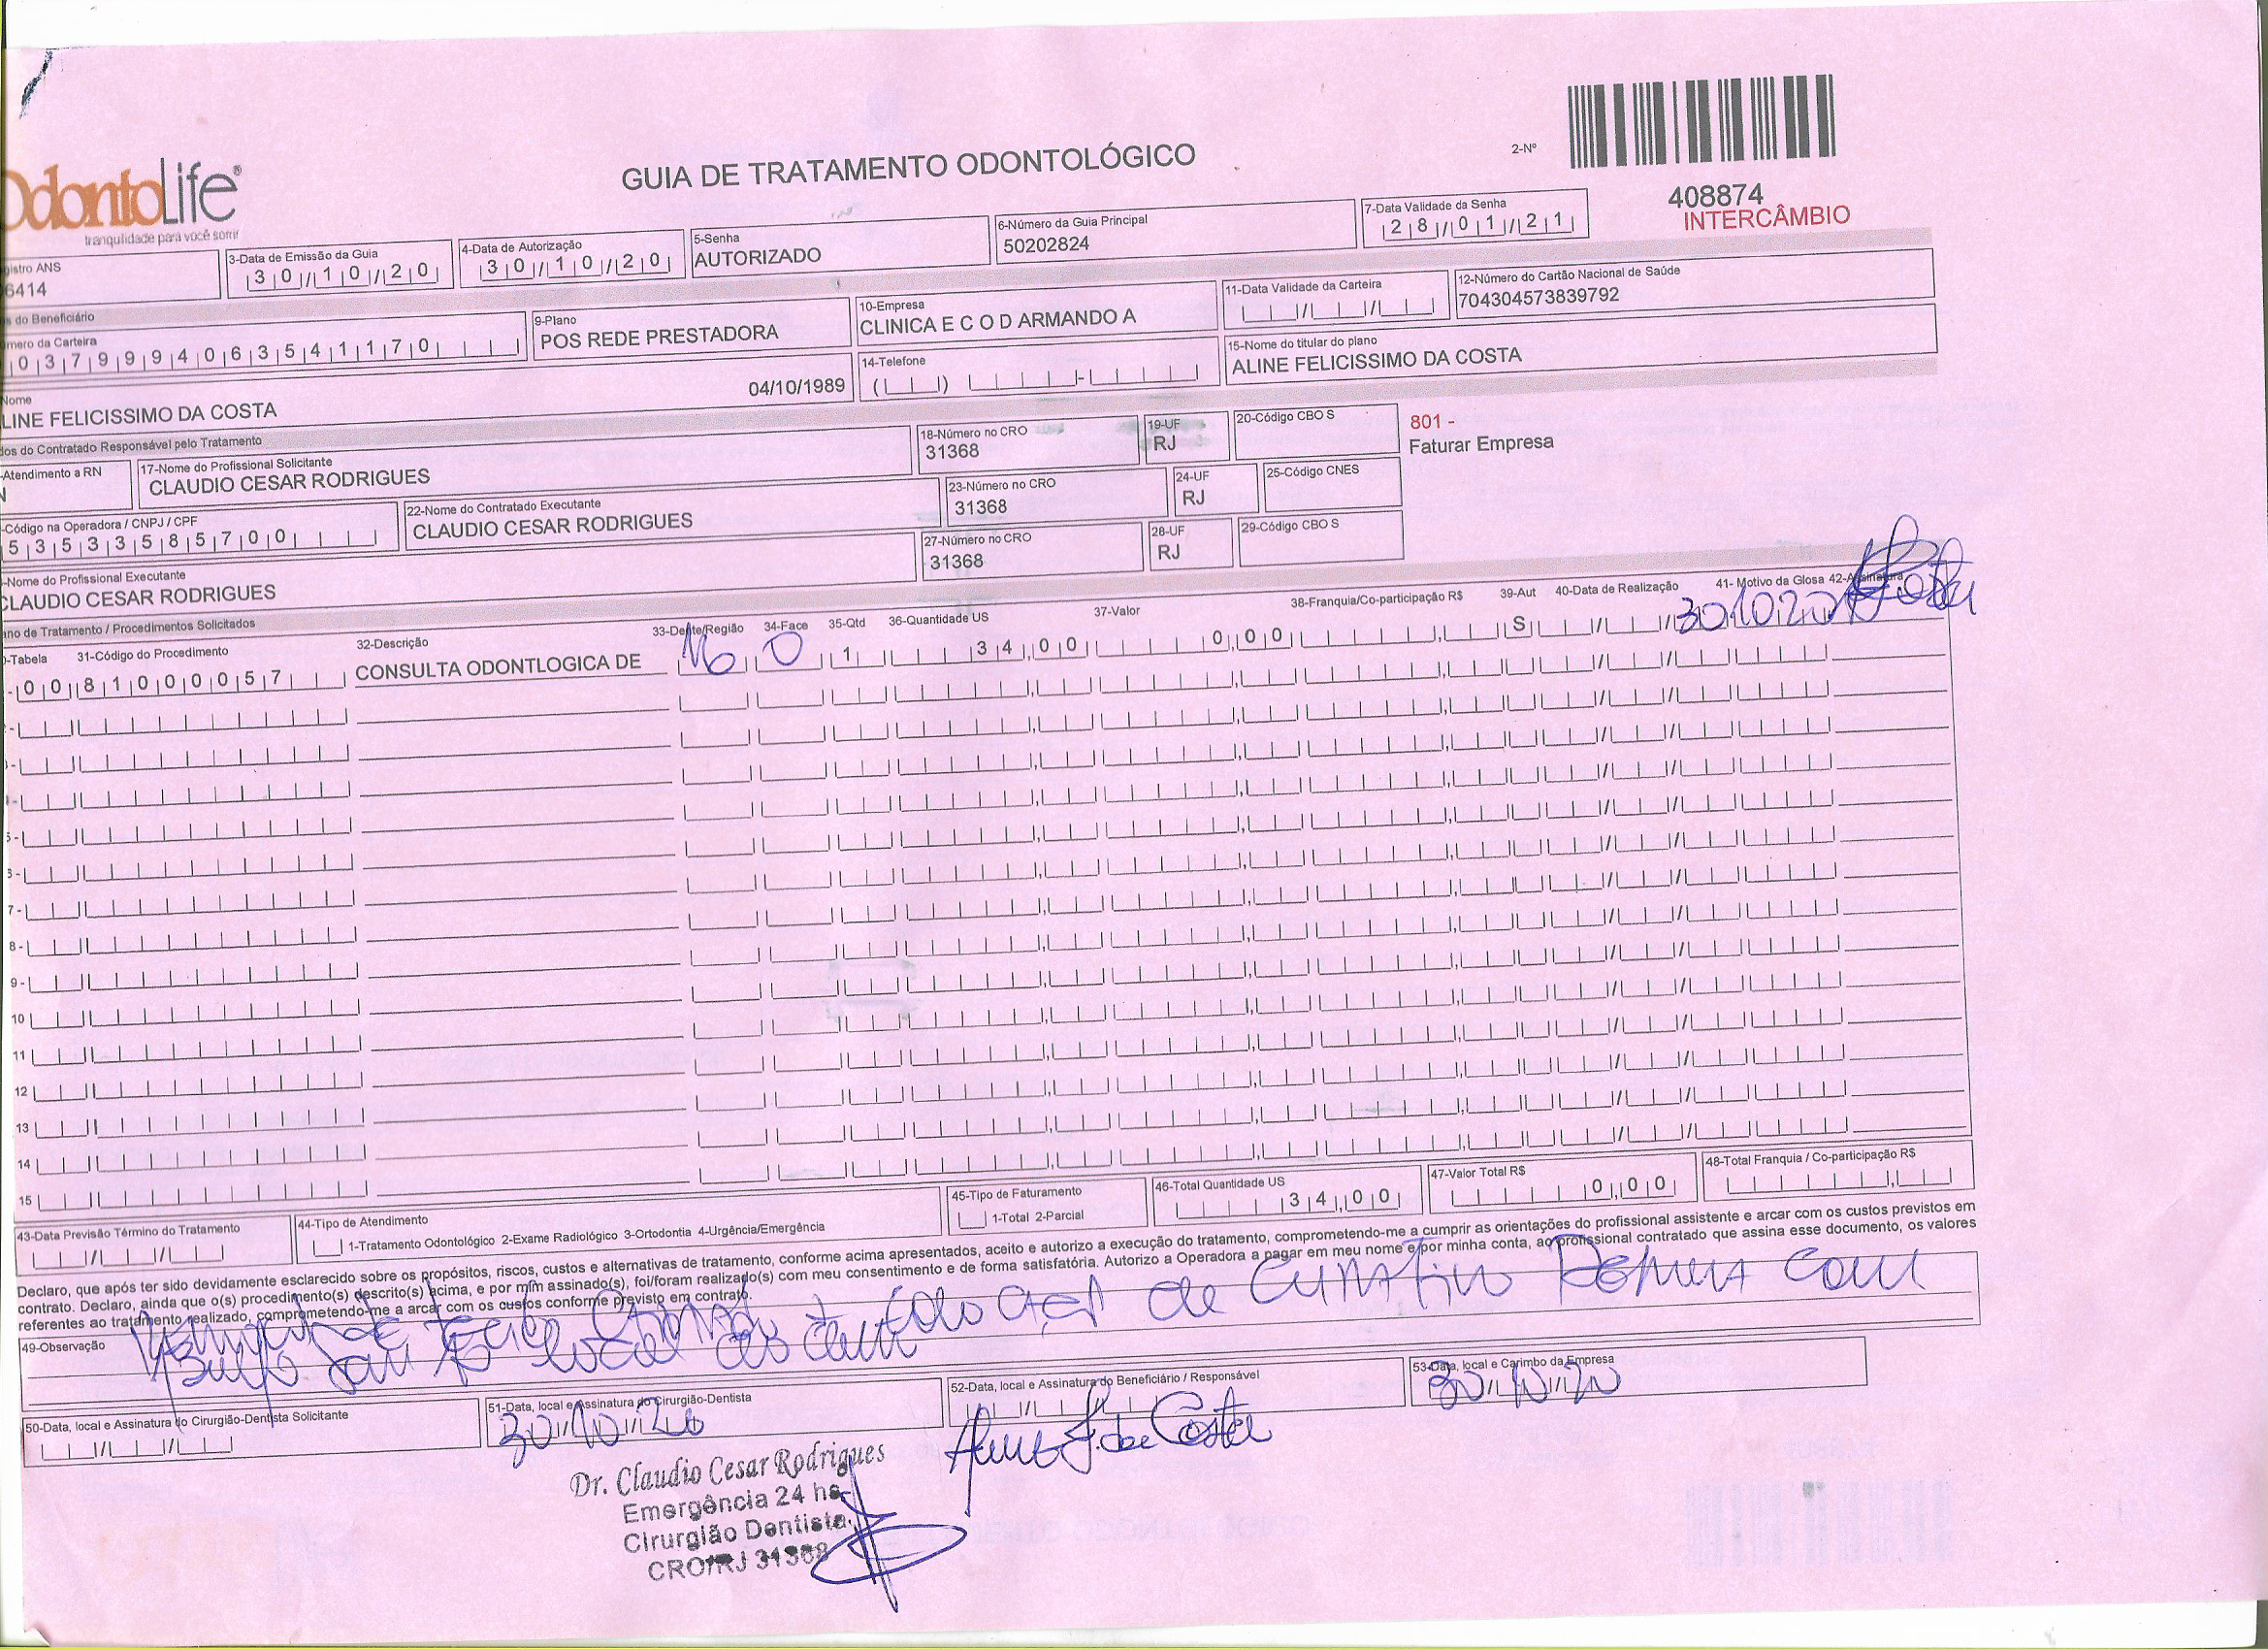 OdontoLife®
tranquilidade para você sorrir
GUIA DE TRATAMENTO ODONTOLÓGICO
2-Nº
408874
INTERCÂMBIO
gistro ANS
6414
3-Data de Emissão da Guia
30/10/20
4-Data de Autorização
30/10/20
5-Senha
AUTORIZADO
6-Número da Guia Principal
50202824
7-Data Validade da Senha
28/01/21
s do Beneficiário
mero da Carteira
0379994063541170
9-Plano
POS REDE PRESTADORA
10-Empresa
CLINICA E C O D ARMANDO A
11-Data Validade da Carteira
12-Número do Cartão Nacional de Saúde
704304573839792
Nome
LINE FELICISSIMO DA COSTA
04/10/1989
14-Telefone
15-Nome do titular do plano
ALINE FELICISSIMO DA COSTA
dos do Contratado Responsável pelo Tratamento
-Atendimento a RN
N
17-Nome do Profissional Solicitante
CLAUDIO CESAR RODRIGUES
18-Número no CRO
31368
19-UF
RJ
20-Código CBO S
801 -
Faturar Empresa
-Código na Operadora / CNPJ / CPF
53533585700
22-Nome do Contratado Executante
CLAUDIO CESAR RODRIGUES
23-Número no CRO
31368
24-UF
RJ
25-Código CNES
-Nome do Profissional Executante
CLAUDIO CESAR RODRIGUES
27-Número no CRO
31368
28-UF
RJ
29-Código CBO S
ano de Tratamento / Procedimentos Solicitados
-Tabela 31-Código do Procedimento 32-Descrição 33-Dente/Região 34-Face 35-Qtd 36-Quantidade US 37-Valor 38-Franquia/Co-participação R$ 39-Aut 40-Data de Realização 41- Motivo da Glosa 42-Assinatura
-00 81000057 CONSULTA ODONTLOGICA DE 16 O 1 34,00 0,00 S 30 10 20 Costa
5-
7-
8-
9-
10
11
12
13
14
15
43-Data Previsão Término do Tratamento
44-Tipo de Atendimento
1-Tratamento Odontológico 2-Exame Radiológico 3-Ortodontia 4-Urgência/Emergência
45-Tipo de Faturamento
1-Total 2-Parcial
46-Total Quantidade US
34,00
47-Valor Total R$
0,00
48-Total Franquia / Co-participação R$
Declaro, que após ter sido devidamente esclarecido sobre os propósitos, riscos, custos e alternativas de tratamento, conforme acima apresentados, aceito e autorizo a execução do tratamento, comprometendo-me a cumprir as orientações do profissional assistente e arcar com os custos previstos em
contrato. Declaro, ainda que o(s) procedimento(s) descrito(s) acima, e por mim assinado(s), foi/foram realizado(s) com meu consentimento e de forma satisfatória. Autorizo a Operadora a pagar em meu nome e por minha conta, ao profissional contratado que assina esse documento, os valores
referentes ao tratamento realizado, comprometendo-me a arcar com os custos conforme previsto em contrato.
49-Observação
de Curativo com
local
50-Data, local e Assinatura do Cirurgião-Dentista Solicitante
51-Data, local e Assinatura do Cirurgião-Dentista
30/10/20
52-Data, local e Assinatura do Beneficiário / Responsável
Aline F. da Costa
53-Data, local e Carimbo da Empresa
30/10/20
Dr. Claudio Cesar Rodrigues
Emergência 24 hs.
Cirurgião Dentista
CRO/RJ 31368